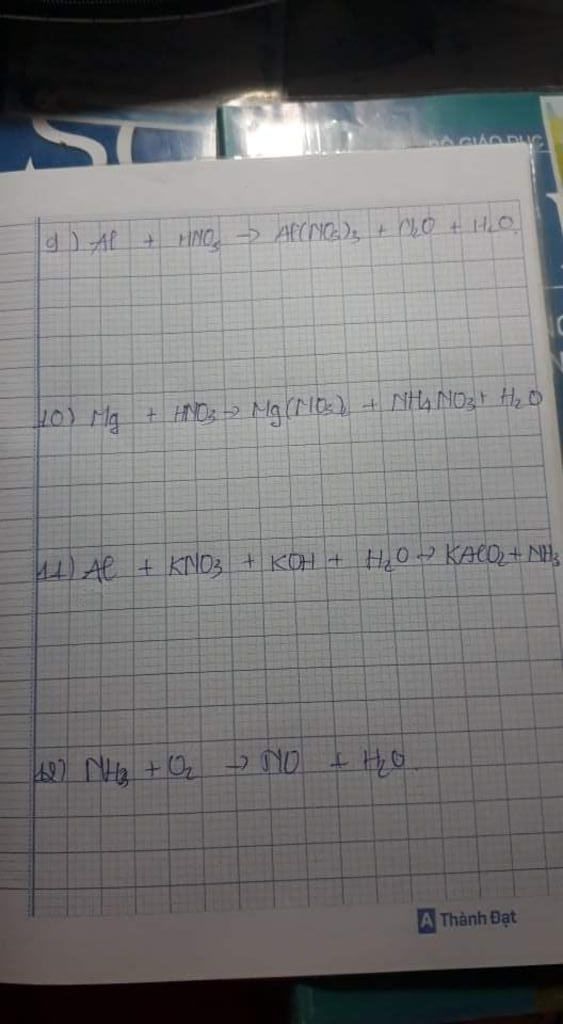 BỘ GIÁO DỤC
9) Al + HNO3 → Al(NO3)3 + N2O + H2O.
10) Mg + HNO3 → Mg(NO3)2 + NH4NO3 + H2O
11) Al + KNO3 + KOH + H2O → KAlO2 + NH3
12) NH3 + O2 → NO + H2O
A Thành Đạt